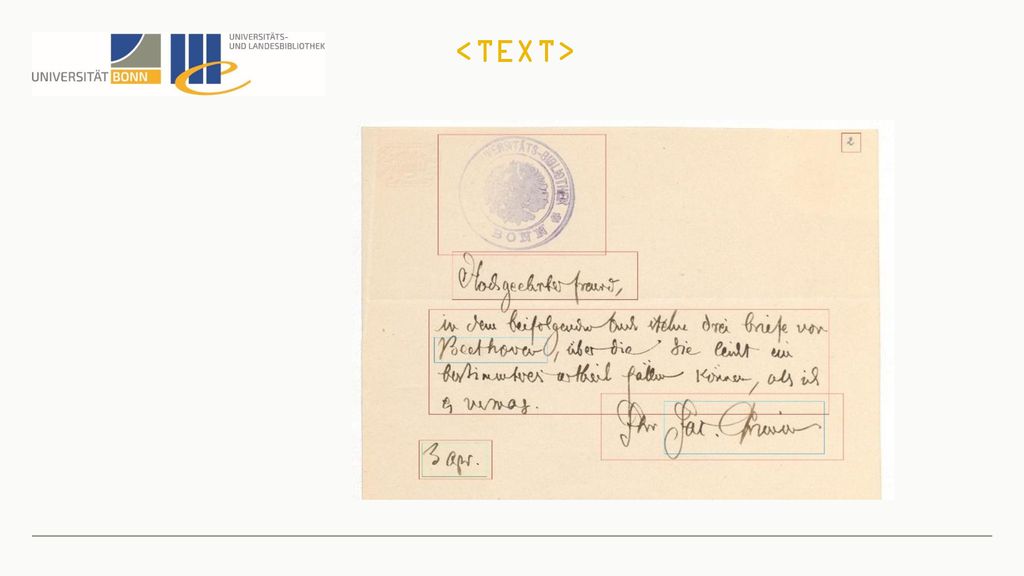 UNIVERSITÄT BONN
UNIVERSITÄTS-
UND LANDESBIBLIOTHEK
<TEXT>
2
BIBLIOTHEK * BONN
Hochgeehrter freund,
in dem beifolgenden buch stehn drei briefe von
Beethoven, über die Sie leicht ein
bestimmteres urtheil fällen können, als ich
es vermag.
Ihr Jac.
3 apr.